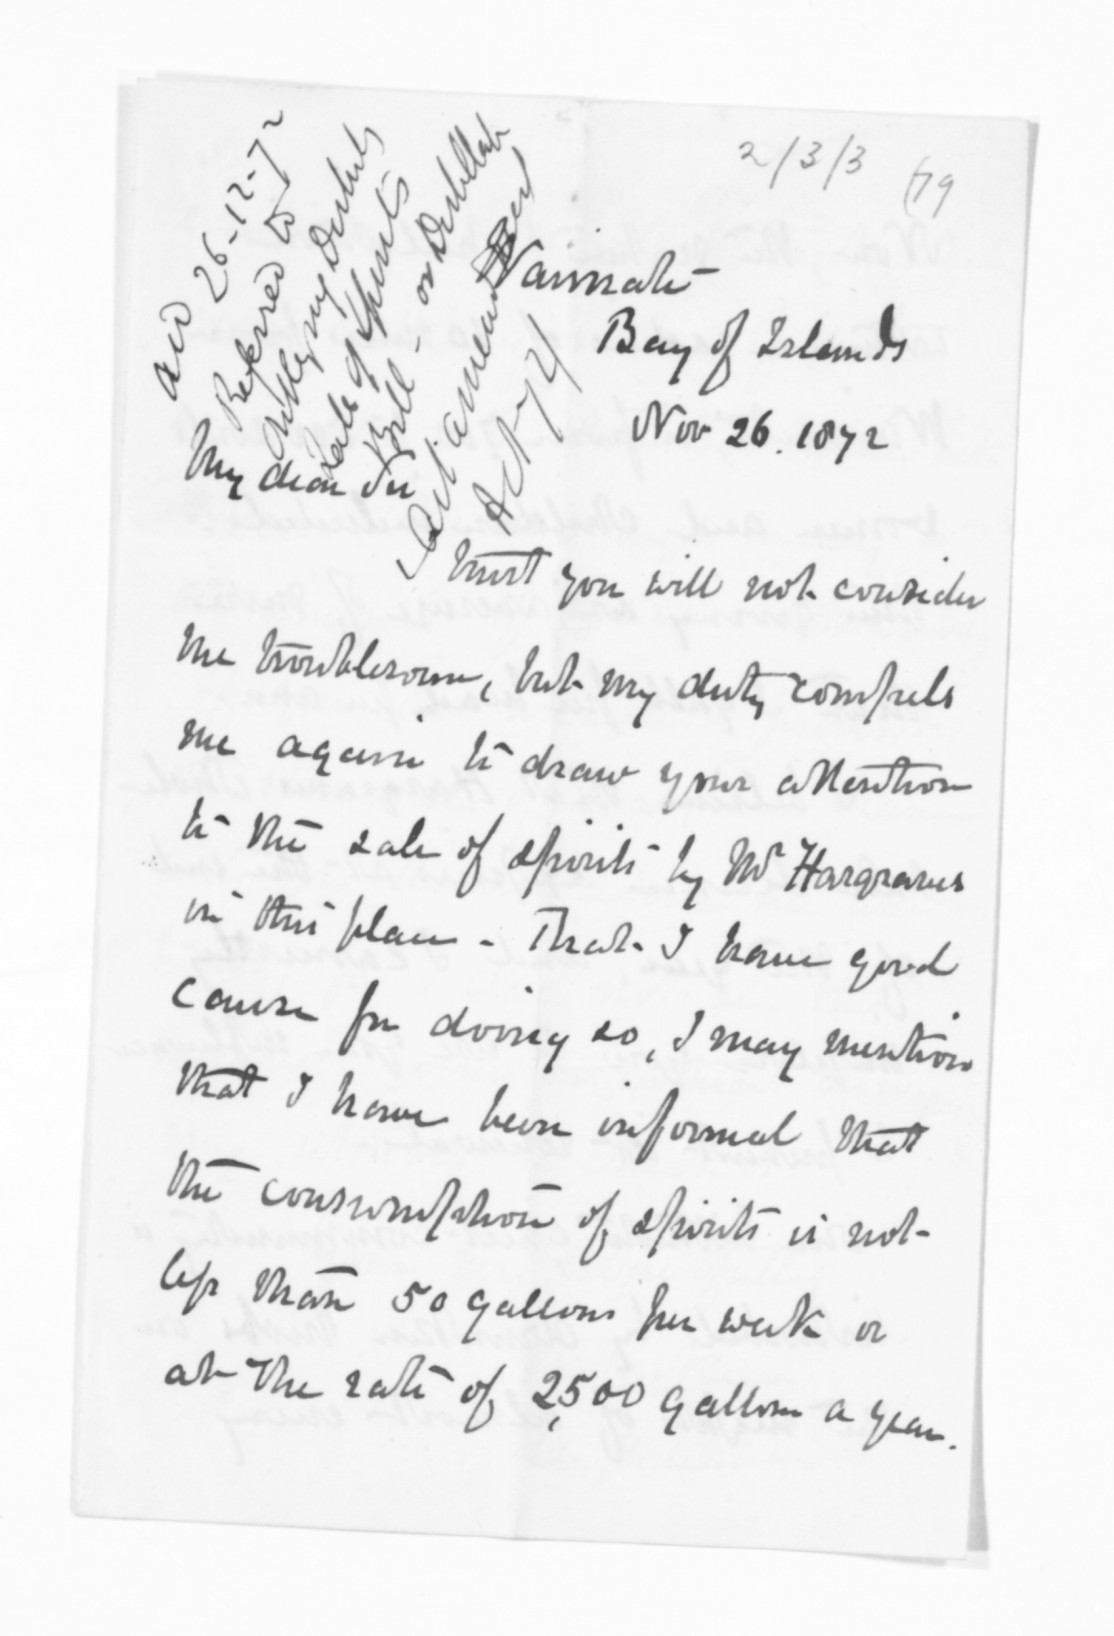 2/3/3 (79
and 26-12-72
Referred to
my
Sale of Spirits
Bill - or Distillation
amendment
Waimate
Bay of Islands
Nov 26. 1872
My dear Sir
I trust you will not consider
me troublesome, but my duty compels
me again to draw your attention
to the sale of spirits by Mr Hargraves
in this place - That I have good
cause for doing so, I may mention
that I have been informed that
the consumption of spirits is not
less than 50 gallons per week or
at the rate of 2,500 gallons a year.